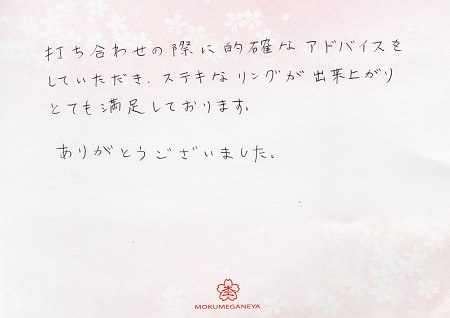 打ち合わせの際に的確なアドバイスを
していただき、ステキなリングが出来上がり
とても満足しております。
ありがとうございました。
MOKUMEGANEYA